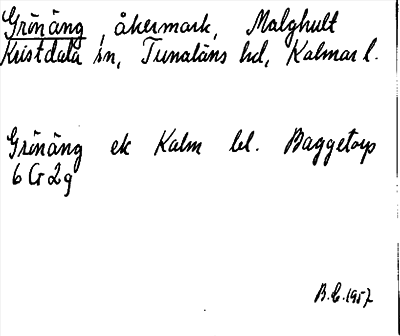 Grönäng, åkermark, Malghult
Kristdala sn, Tunaläns hd, Kalmar l.
Grönäng ek Kalm bl. Baggetorp
6 G 2 g
B.E. 1957